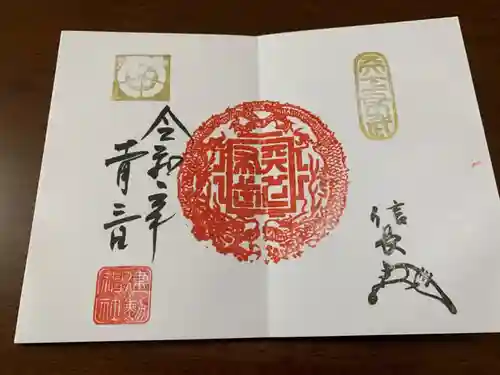 天下布武
信長
天下布武
令和二年
月三日
建勲
神社